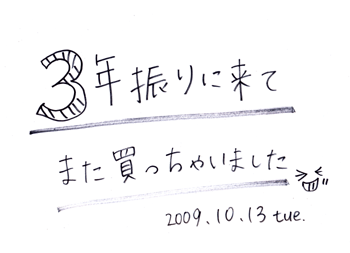 3年振りに来て
また買っちゃいました
2009.10.13 tue.